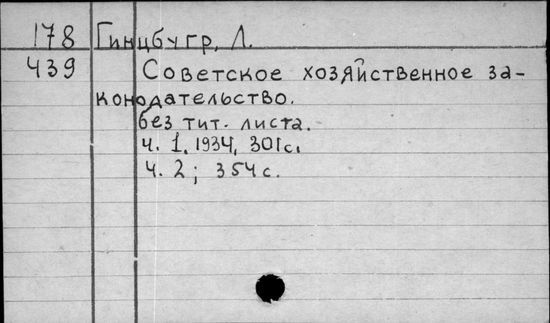 178 Гинцбугр, Л.
439 Советское хозяйственное за-
конодательство.
без тит. листа.
ч. 1. 1934, 301с.
ч. 2; 354с.